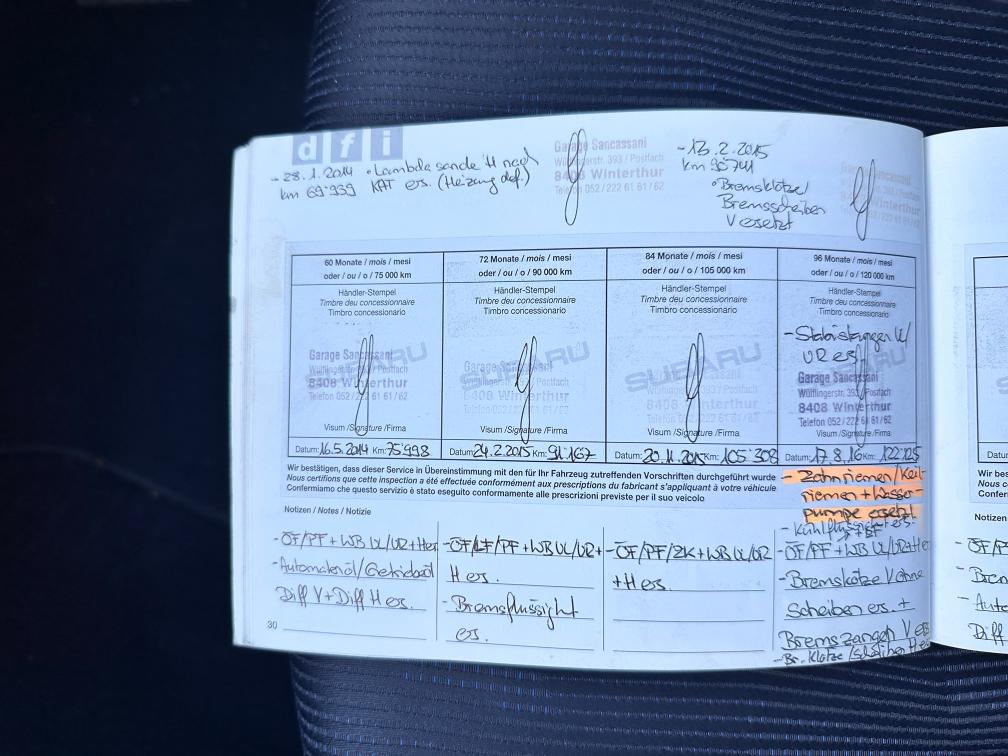 dfi
- 28.1.2014 • Lambda sonde H nach
km 69'939 KAT ers. (Heizung def.)
Garage Sancassani
Wülflingerstr. 393 / Postfach
8408 Winterthur
Telefon 052 / 222 61 61 / 62
- 13.2.2015
km 90'741
• Bremsklötze/
Bremsscheiben
V esetzt
Winterthur
052 / 222 61 61 / 62
60 Monate / mois / mesi
oder / ou / o / 75 000 km
Händler-Stempel
Timbre deu concessionnaire
Timbro concessionario
SUBARU
Garage Sancassani
Wülflingerstr. 393 / Postfach
8408 Winterthur
Telefon 052 / 222 61 61 / 62
Visum /Signature /Firma
Datum: 16.5.2014 Km: 75'998
72 Monate / mois / mesi
oder / ou / o / 90 000 km
Händler-Stempel
Timbre deu concessionnaire
Timbro concessionario
SUBARU
Garage Sancassani
8408 Winterthur
Telefon 052 / 222 61 61 / 62
Visum /Signature /Firma
Datum: 24.2.2015 Km: 91'167
84 Monate / mois / mesi
oder / ou / o / 105 000 km
Händler-Stempel
Timbre deu concessionnaire
Timbro concessionario
SUBARU
8408 Winterthur
Telefon 052 / 222 61 61 / 62
Visum /Signature /Firma
Datum: 20.11.2015 Km: 105'308
96 Monate / mois / mesi
oder / ou / o / 120 000 km
Händler-Stempel
Timbre deu concessionnaire
Timbro concessionario
- Stabistangen U/
UR es.
Garage Sancassani
Wülflingerstr. 393 / Postfach
8408 Winterthur
Telefon 052 / 222 61 61 / 62
Visum /Signature /Firma
Datum: 17.8.16 Km: 122'125
Wir bestätigen, dass dieser Service in Übereinstimmung mit den für Ihr Fahrzeug zutreffenden Vorschriften durchgeführt wurde
Nous certifions que cette inspection a été effectuée conformément aux prescriptions du fabricant s'appliquant à votre véhicule
Confermiamo che questo servizio è stato eseguito conformemente alle prescrizioni previste per il suo veicolo
- Zahnriemen/Keil
riemen + Wasser-
pumpe ersetzt
Notizen / Notes / Notizie
- ÖF/PF + WB UL/UR + Her
- Automatenöl/Getriebeöl
Diff V + Diff H es.
- ÖF/LF/PF + WB UL/UR +
H es.
- Bremsflüssight
es.
- ÖF/PF/ZK + WB UL/UR
+ H es.
- Kühlflüssight ers.
- ÖF/PF + WB UL/UR + He
- Bremsklötze V ohne
Scheiben es. +
Bremszangen V es
- Br. Klötze / Scheiben H es
30
Wir bes
Nous c
Confer
Notizen
- ÖF/P
- Brem
- Auto
Diff